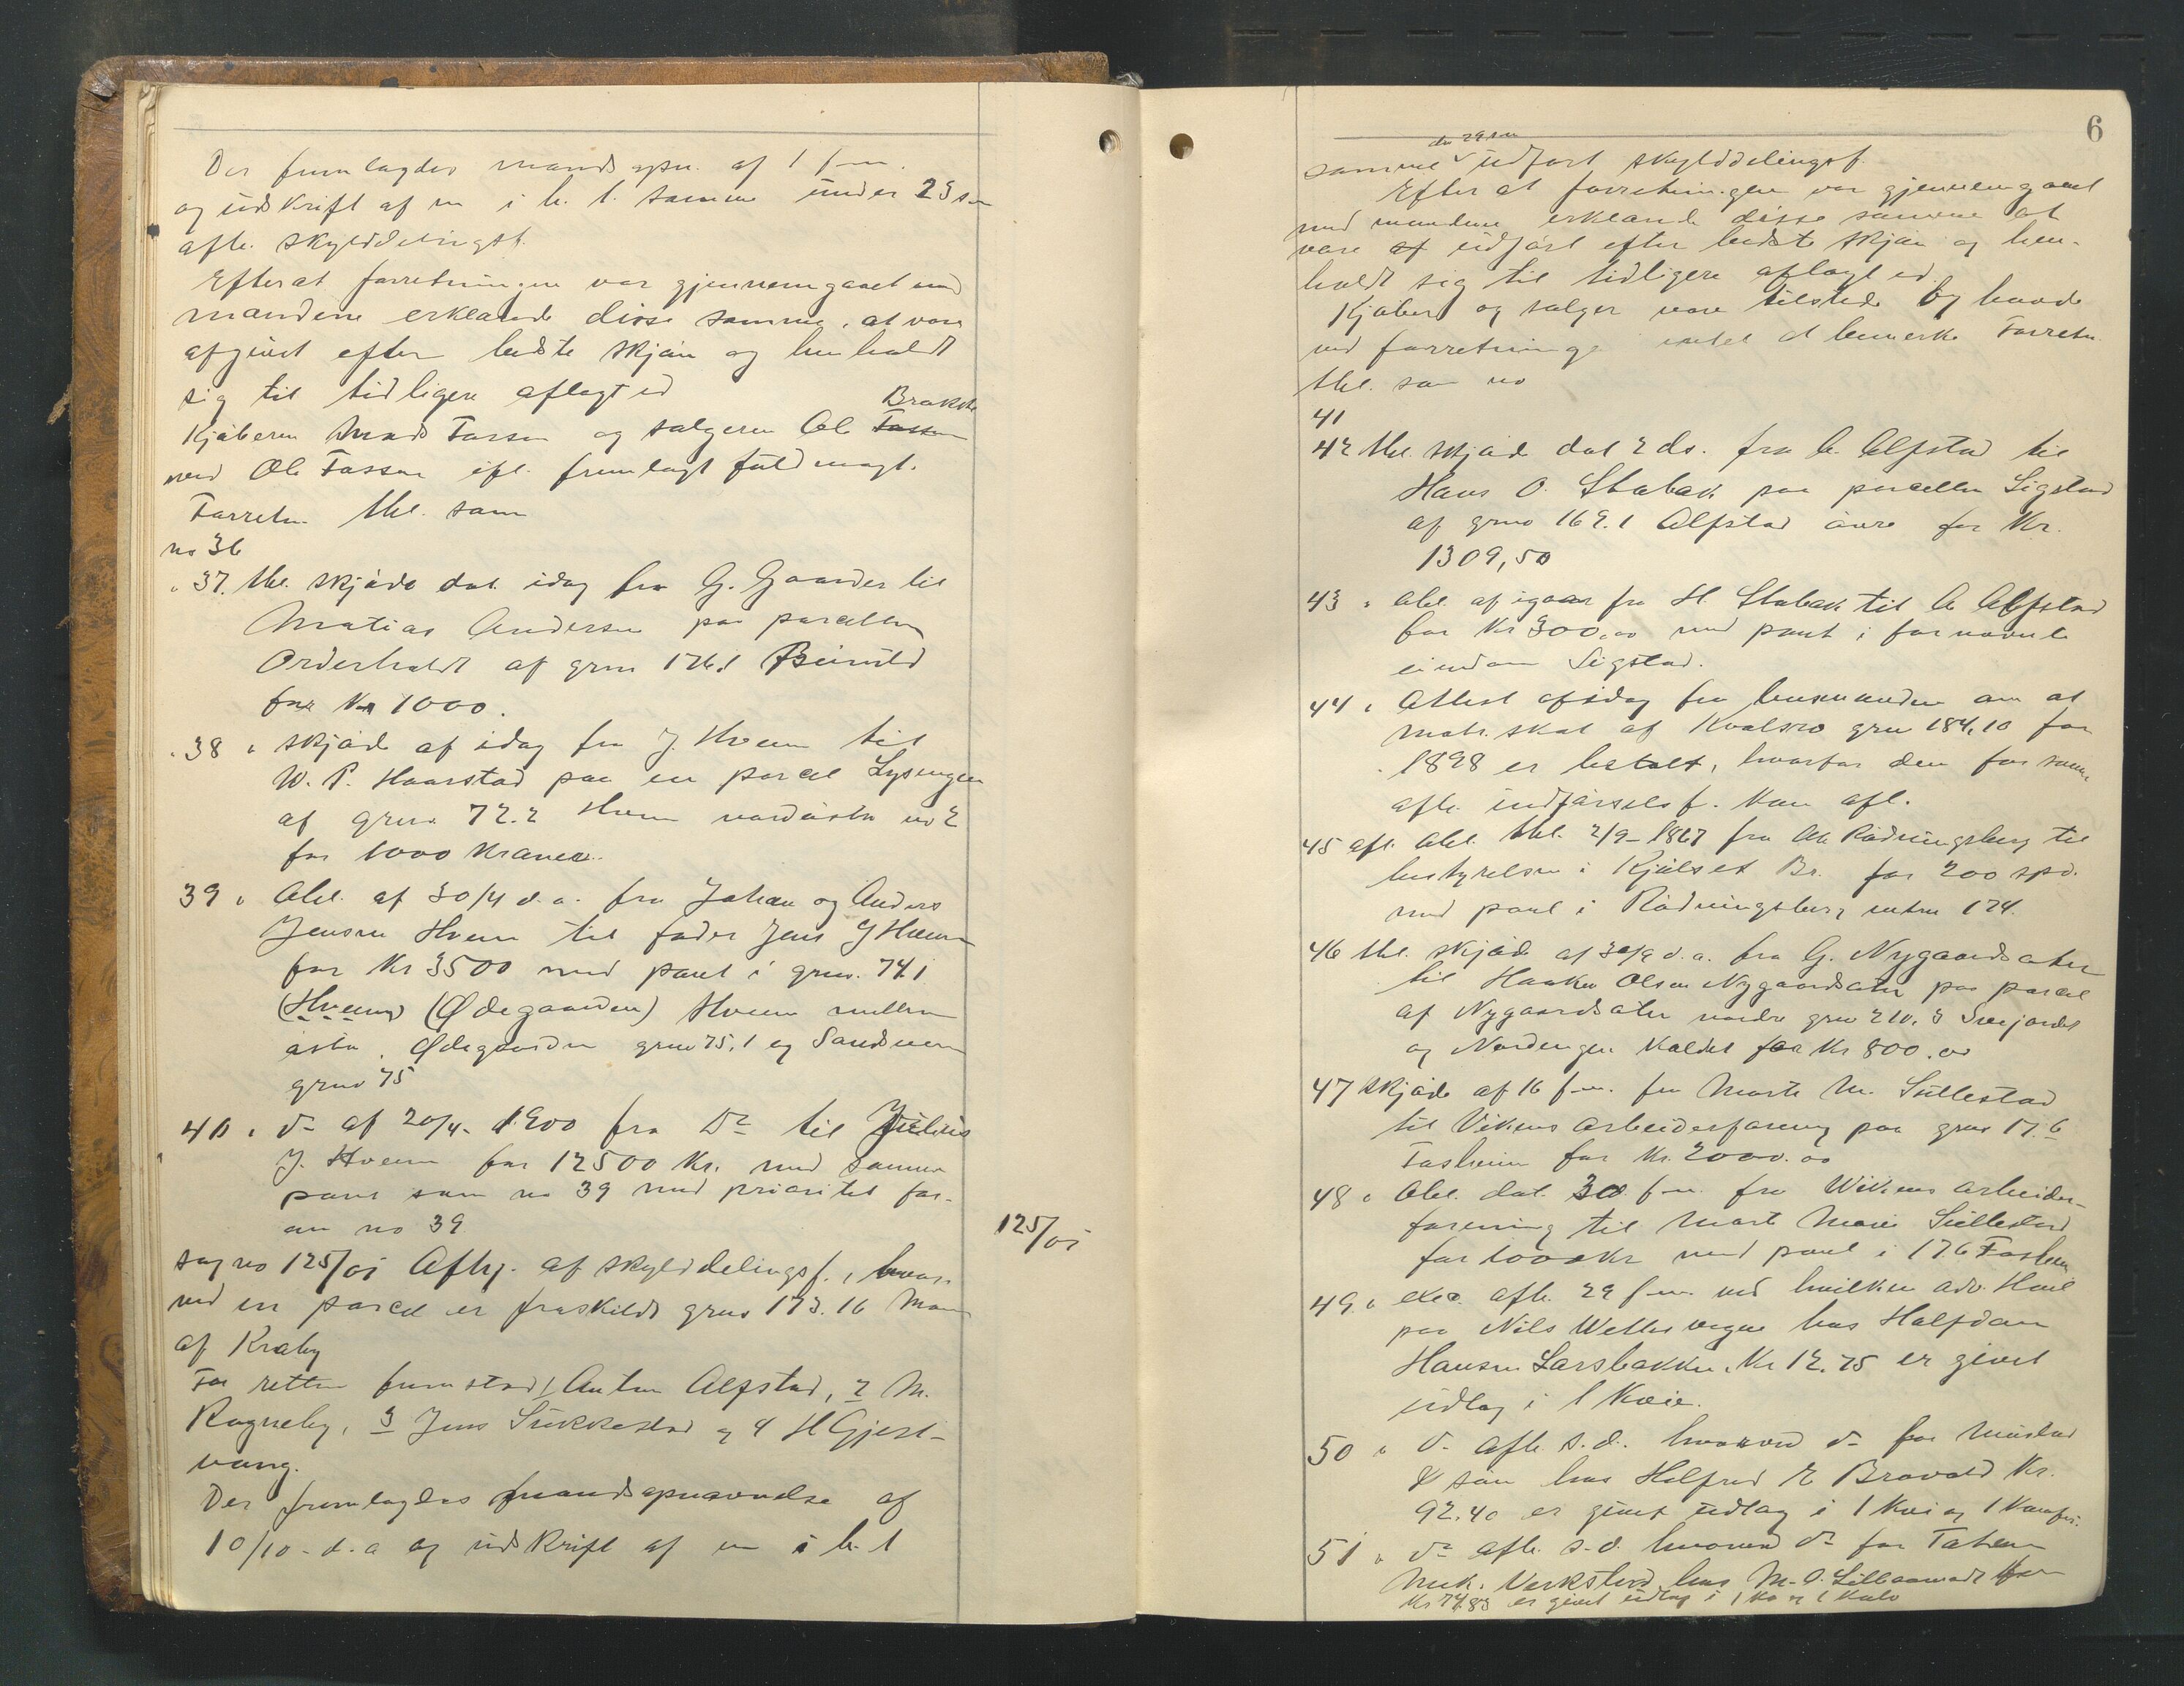 Der fremlagdes mandsopn. af 1 f-m.
og udskrift af en i h. t. samme under 23 s-m
afh. skylddelingsf.
Efterat forretningen var gjennemgaaet med
mændene erklærede disse samme, at være
afgivet efter bedste skjøn og henholdt
sig til tidligere aflagt ed
Kjøberen Mads Fossen og sælgeren Ole Fossen Brakstu
ved Ole Fossen ifl. fremlagt fuldmagt.
Forretn. thl. som
no 36
" 37. thl. skjøde dat. idag fra G. Gaarder til
Matias Andersen paa parcellen
Orderholdt af grno 176.1
for Kr 1000.
" 38 " skjøde af idag fra J. Hveem til
W. P. Haarstad paa en parcel Lysengen
af grno 72.2 Hveem nordøstre no 2
for 1000 Kroner.
39 " Obl. af 30/4 d.a. fra Johan og Anders
Jensen Hveem til fader Jens J Hveem
for Kr 3500 med pant i grno. 74.1
(Hveem) (Ødegaarden) Hveem mellem
østre. Ødegaarden grno 75,1 og Sandsveen
grno 75
40 " d- af 20/4- 1900 fra Do til Julius
J. Hveem for 12500 Kr. med samme
pant som no 39 med prioritet for-
an no 39
sag no 125/01 Afhj. af skylddelingsf., hvor-
ved en parcel er fraskildt grno 173.16 Moen
af Kraby
For retten fremstod 1 Anton Alfstad, 2 M.
Rogneby, 3 Jens Sukkestad og 4 H Gjest-
vang.
Der fremlagdes mandsopnævnelse af
10/10- d.a og udskrift af en i h. t
125/01
6
samme den 29 s-m udført skylddelingsf.
Efter at forretningen var gjennemgaaet
med mændene erklærede disse samme at
være af udført efter bedste skjøn og hen-
holdt sig til tidligere aflagt ed.
Kjøber og sælger vare tilstede og havde
ved forretninge intet at bemerke Forretn.
thl. som no
41
42 thl. skjøde dat 2 ds. fra A. Alfstad til
Hans O. Stabæk paa parcellen Sigstad
af grno 169.1 Alfstad øvre for Kr.
1309,50
43 " obl. af igaar fra H. Stabæk til A Alfstad
for Kr 300,00 med pant i fornævnte
eiendom Sigstad.
44 " Attest af idag fra lensmanden om at
matr. skat af Kvalsro grno 184,10 for
1898 er betalt, hvorfor den for samme
afh. indførselsf. kan afl.
45 afl. obl. thl. 2/9-1867 fra Ole Rødningsberg til
bestyrelsen i Kjølset Br. for 200 spd.
med pant i Rødningsberg matr 174.
46 thl. skjøde af 30/9 d.a. fra G. Nygaardsæter
til Haaken Olsen Nygaardsæter paa parcel
af Nygaardsæter nordre grno 210,3
og Nordengen kaldet for Kr 800.00
47 skjøde af 16 f-m. fra Marte M. Sillestad
til Vikens arbeiderforening paa grno 17.6
Fosheim for Kr. 2000.00
48 " Obl. dat. 30 f-m. fra Wikens arbeider-
forening til Marte Marie Sillestad
for 1000 kr med pant i 17.6 Fosheim
49 " exec. afh. 29 f-m. ved hvilken adv.
paa Nils Welles vegne hos Halfdan
Hansen Larsbakken Kr 12.75 er givet
udlæg i 1 Kvie.
50 " d- afh s.d. hvorved d- for Mustad
& søn hos Halfred E Bravold Kr.
92.40 er givet udlæg i 1 Kvi og 1
51 " do afh. s.d. hvorved do for Toten
Mek. Verksted hos M. O.
Kr 74.83 er givet udlæg i 1 Ko og 1 Kalv